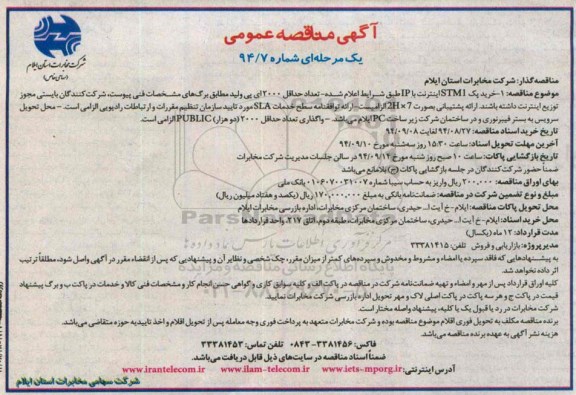 آگهی مناقصه عمومی
یک مرحله‌ای شماره ۹۴/۷
شرکت مخابرات استان ایلام
(سهامی خاص)
مناقصه‌گذار: شرکت مخابرات استان ایلام
موضوع مناقصه: ۱-خرید پک STM1 اینترنت با IP طبق شرایط اعلام شده- تعداد حداقل ۲۰۰۰ آی پی ولید مطابق برگ‌های مشخصات فنی پیوست، شرکت‌کنندگان بایستی مجوز
توزیع اینترنت داشته باشند. ارائه پشتیبانی بصورت 7×2H الزامی است -ارائه توافقنامه سطح خدمات SLA مورد تایید سازمان تنظیم مقررات و ارتباطات رادیویی الزامی است. - محل تحویل
سرویس به بستر فیبرنوری و در ساختمان شرکت زیر ساخت PC ایلام می‌باشد. - واگذاری تعداد حداقل ۲۰۰۰ (دو هزار) PUBLIC الزامی است.
تاریخ خرید اسناد مناقصه: ۹۴/۰۸/۲۷ لغایت ۹۴/۰۹/۰۸
آخرین مهلت تحویل اسناد: ساعت ۱۵:۳۰ روز سه‌شنبه مورخ ۹۴/۰۹/۱۰
تاریخ بازگشایی پاکات: ساعت ۱۰ صبح روز شنبه مورخ ۹۴/۰۹/۱۴ در سالن جلسات مدیریت شرکت مخابرات
ضمناً حضور شرکت‌کنندگان در جلسه بازگشایی پاکات (ج) بلامانع می‌باشد
بهای اوراق مناقصه: ۲۰۰.۰۰۰ ریال واریز به حساب سیبا شماره ۰۱۰۶۰۷۰۰۳۱۰۰۷ بانک ملی
مبلغ و نوع تضمین شرکت در مناقصه: ضمانت‌نامه بانکی به مبلغ ۱۷۰.۰۰۰.۰۰۰ ریال (یکصد و هفتاد میلیون ریال)
محل تحویل پاکات مناقصه: ایلام-خ آیت ا... حیدری، ساختمان مرکزی مخابرات، اداره بازرسی مخابرات ایلام
محل خرید اسناد: ایلام-خ آیت ا... حیدری، ساختمان مرکزی مخابرات، طبقه دوم، اتاق ۲۱۷، واحد قراردادها
مدت قرارداد: ۱۲ ماه (یکسال)
مدیر پروژه: بازاریابی و فروش تلفن: ۳۳۳۸۱۴۱۵
به پیشنهادهایی که فاقد سپرده یا امضاء و مشروط و مخدوش و سپرده‌های کمتر از میزان مقرر، چک شخصی و نظایر آن و پیشنهادیی که پس از انقضاء مقرر در آگهی واصل شود، مطلقاً ترتیب
اثر داده نخواهد شد.
کلیه اوراق قرارداد پس از مهر و امضاء و تهیه ضمانت‌نامه شرکت در مناقصه در پاکت الف و کلیه سوابق کاری و گواهی حسن انجام کار و مشخصات فنی کالا و خدمات در پاکت ب و برگ پیشنهاد
قیمت در پاکت ج و هر سه پاکت در پاکت اصلی لاک و مهر تحویل اداره بازرسی شرکت مخابرات نمایید.
شرکت مخابرات در رد یا قبول یک یا کلیه پیشنهاد واصله مختار است.
برنده مناقصه مکلف به تحویل فوری اقلام موضوع مناقصه بوده و شرکت مخابرات متعهد به پرداخت فوری وجه معامله پس از تحویل اقلام و اخذ تاییدیه حوزه متقاضی می‌باشد.
هزینه نشر آگهی به عهده برنده مناقصه می‌باشد.
فاکس: ۳۳۳۸۱۴۵۶-۰۸۴۳ تلفن تماس: ۳۳۳۸۱۴۵۳
ضمناً اسناد مناقصه در سایت‌های ذیل قابل دریافت می‌باشد.
آدرس اینترنتی: www.iets-mporg.ir www.ilam-telecom.ir www.irantelecom.ir
شرکت سهامی مخابرات استان ایلام